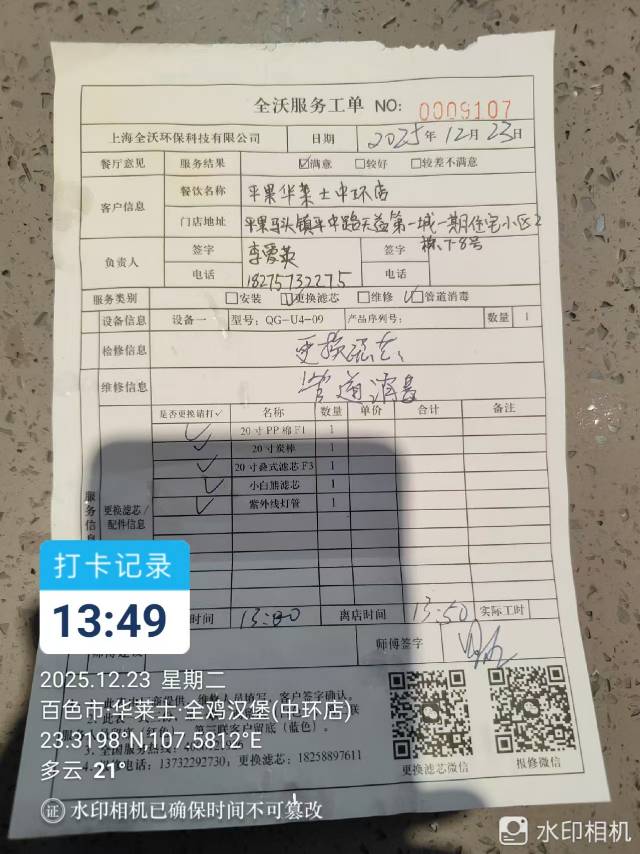 全沃服务工单 NO: 0009107
上海全沃环保科技有限公司 日期 2025年12月23日
餐厅意见 服务结果 ☑满意 □较好 □较差不满意
客户信息 餐饮名称 平果华莱士中环店
门店地址 平果马头镇平中路天益第一城一期住宅小区2
栋下8号
负责人 签字 李爱英 签字
电话 18275732275 电话
服务类别 □安装 ☑更换滤芯 □维修 ☑管道消毒
设备信息 设备一 型号: QG-U4-09 产品序列号: 数量 1
检修信息 更换滤芯
维修信息 管道消毒
是否更换请打✓ 名称 数量 单价 合计 备注
✓ 20寸PP棉F1 1
✓ 20寸炭棒 1
✓ 20寸叠式滤芯F3 1
✓ 小白熊滤芯 1
✓ 紫外线灯管 1
服务信息 更换滤芯/
配件信息
时间 13:00 离店时间 13:50 实际工时
师傅签字
打卡记录
13:49
2025.12.23 星期二
百色市·华莱士·全鸡汉堡(中环店)
23.3198°N,107.5819°E
多云 21°
维修人员填写,客户签字确认。
第三联客户留底(蓝色)。
3. 全国服务热线:
电话:13732292730,更换滤芯:18258897611
更换滤芯微信 报修微信
证 水印相机已确保时间不可篡改
水印相机